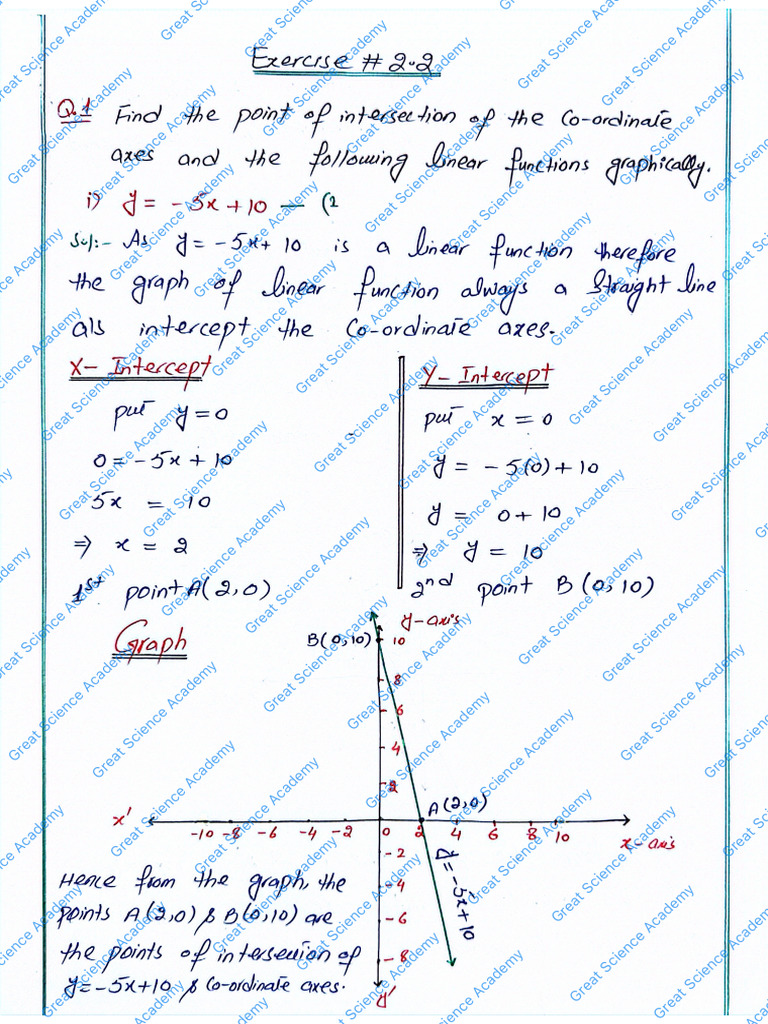 Exercise # 2.2
Q.1 Find the point of intersection of the Co-ordinate
axes and the following linear functions graphically.
i) y = -5x + 10 — (2
Sol:- As y = -5x + 10 is a linear function therefore
the graph of linear function always a straight line
als intercept the Co-ordinate axes.
X- Intercept
put y = 0
0 = -5x + 10
5x = 10
⇒ x = 2
1st point A(2,0)
Y- Intercept
put x = 0
y = -5(0) + 10
y = 0 + 10
⇒ y = 10
2nd point B(0,10)
Graph
y-axis
B(0,10)
10
8
6
4
2
A(2,0)
x'
-10 -8 -6 -4 -2 0 2 4 6 8 10
x-axis
-2
-4
-6
-8
y'
y = -5x + 10
Hence from the graph, the
points A(2,0) & B(0,10) are
the points of intersection of
y = -5x+10 & Co-ordinate axes.
Great Science Academy